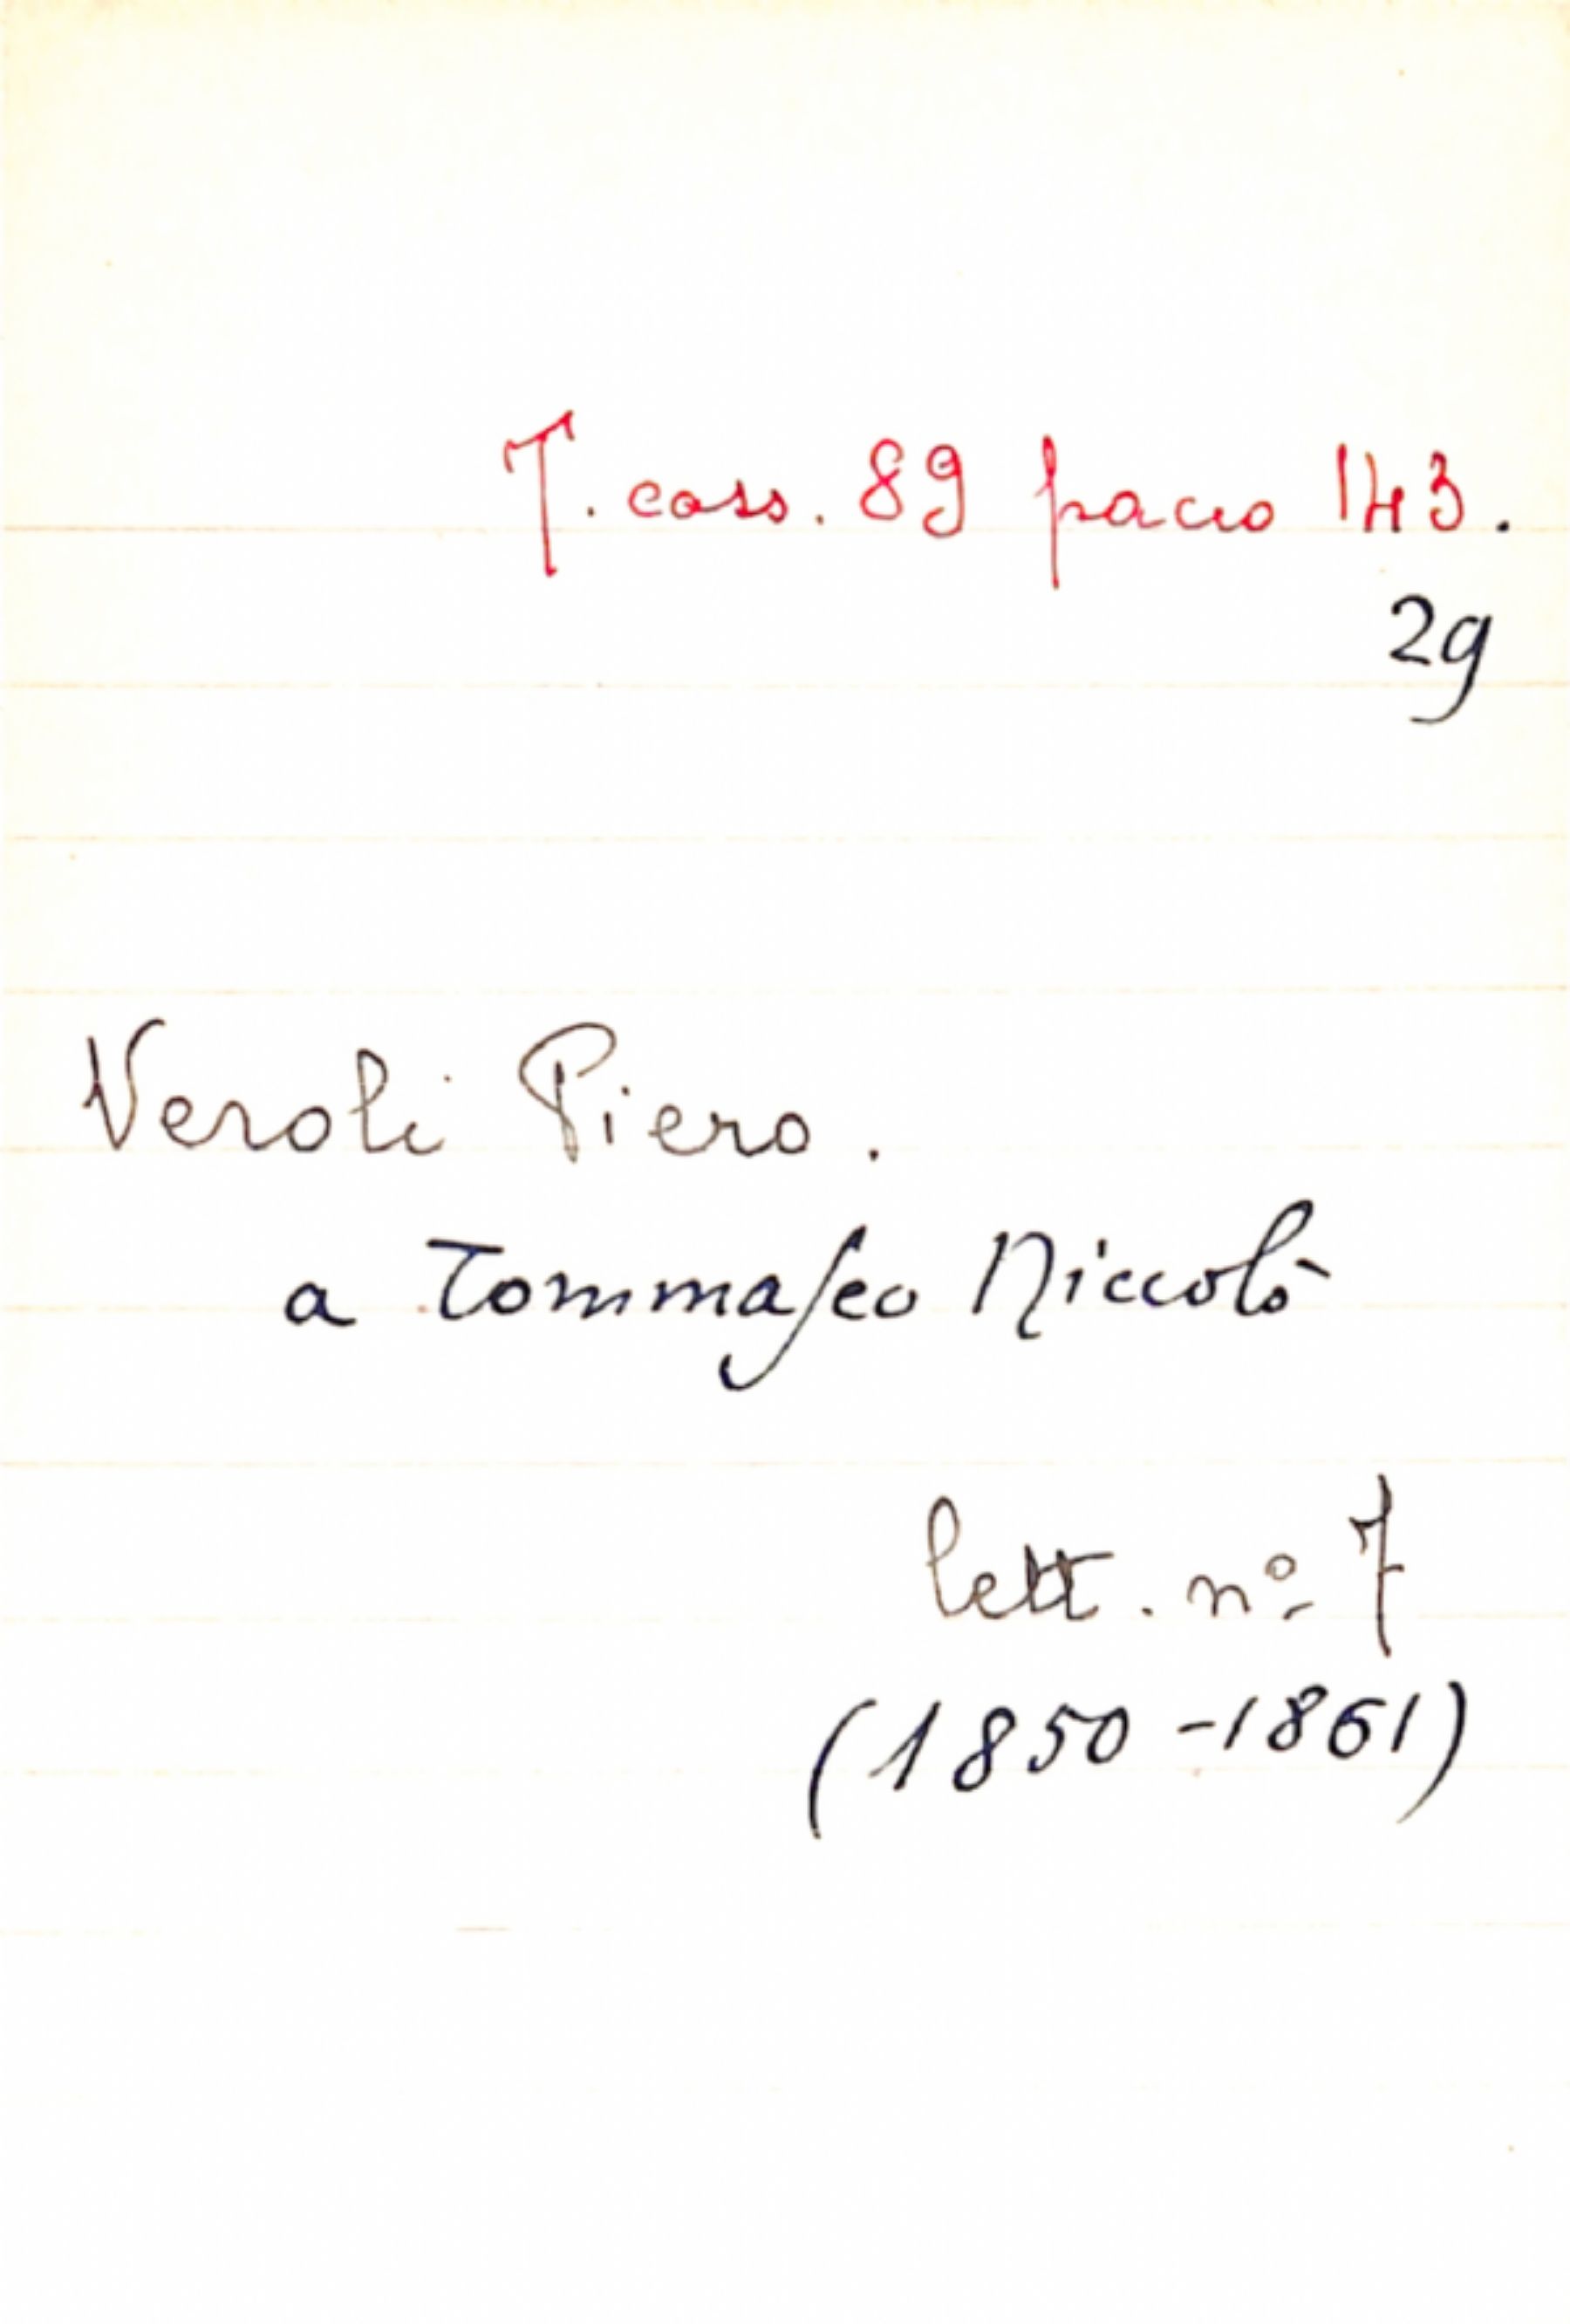 T. cass. 89 pacco 143.
29
Veroli Piero.
a Tommaseo Niccolò
lett. nº 7
(1850-1861)